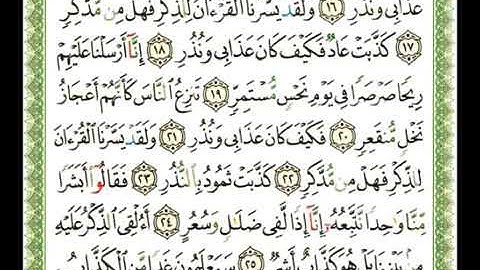 عَذَابِى وَنُذُرِ ﴿١٦﴾ وَلَقَدْ يَسَّرْنَا ٱلْقُرْءَانَ لِلذِّكْرِ فَهَلْ مِن مُّدَّكِرٍ
﴿١٧﴾ كَذَّبَتْ عَادٌ فَكَيْفَ كَانَ عَذَابِى وَنُذُرِ ﴿١٨﴾ إِنَّآ أَرْسَلْنَا عَلَيْهِمْ
رِيحًا صَرْصَرًا فِى يَوْمِ نَحْسٍ مُّسْتَمِرٍّ ﴿١٩﴾ تَنزِعُ ٱلنَّاسَ كَأَنَّهُمْ أَعْجَازُ
نَخْلٍ مُّنقَعِرٍ ﴿٢٠﴾ فَكَيْفَ كَانَ عَذَابِى وَنُذُرِ ﴿٢١﴾ وَلَقَدْ يَسَّرْنَا ٱلْقُرْءَانَ
لِلذِّكْرِ فَهَلْ مِن مُّدَّكِرٍ ﴿٢٢﴾ كَذَّبَتْ ثَمُودُ بِٱلنُّذُرِ ﴿٢٣﴾ فَقَالُوٓا۟ أَبَشَرًا
مِّنَّا وَٰحِدًا نَّتَّبِعُهُۥٓ إِنَّآ إِذًا لَّفِى ضَلَٰلٍ وَسُعُرٍ ﴿٢٤﴾ أَءُلْقِىَ ٱلذِّكْرُ عَلَيْهِ
مِنۢ بَيْنِنَا بَلْ هُوَ كَذَّابٌ أَشِرٌ ﴿٢٥﴾ سَيَعْلَمُونَ غَدًا مَّنِ ٱلْكَذَّابُ